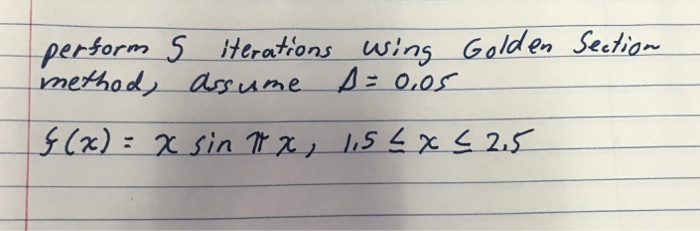 perform 5 iterations using Golden Section
method, assume Δ = 0.05
f(x) = x sin π x, 1.5 ≤ x ≤ 2.5